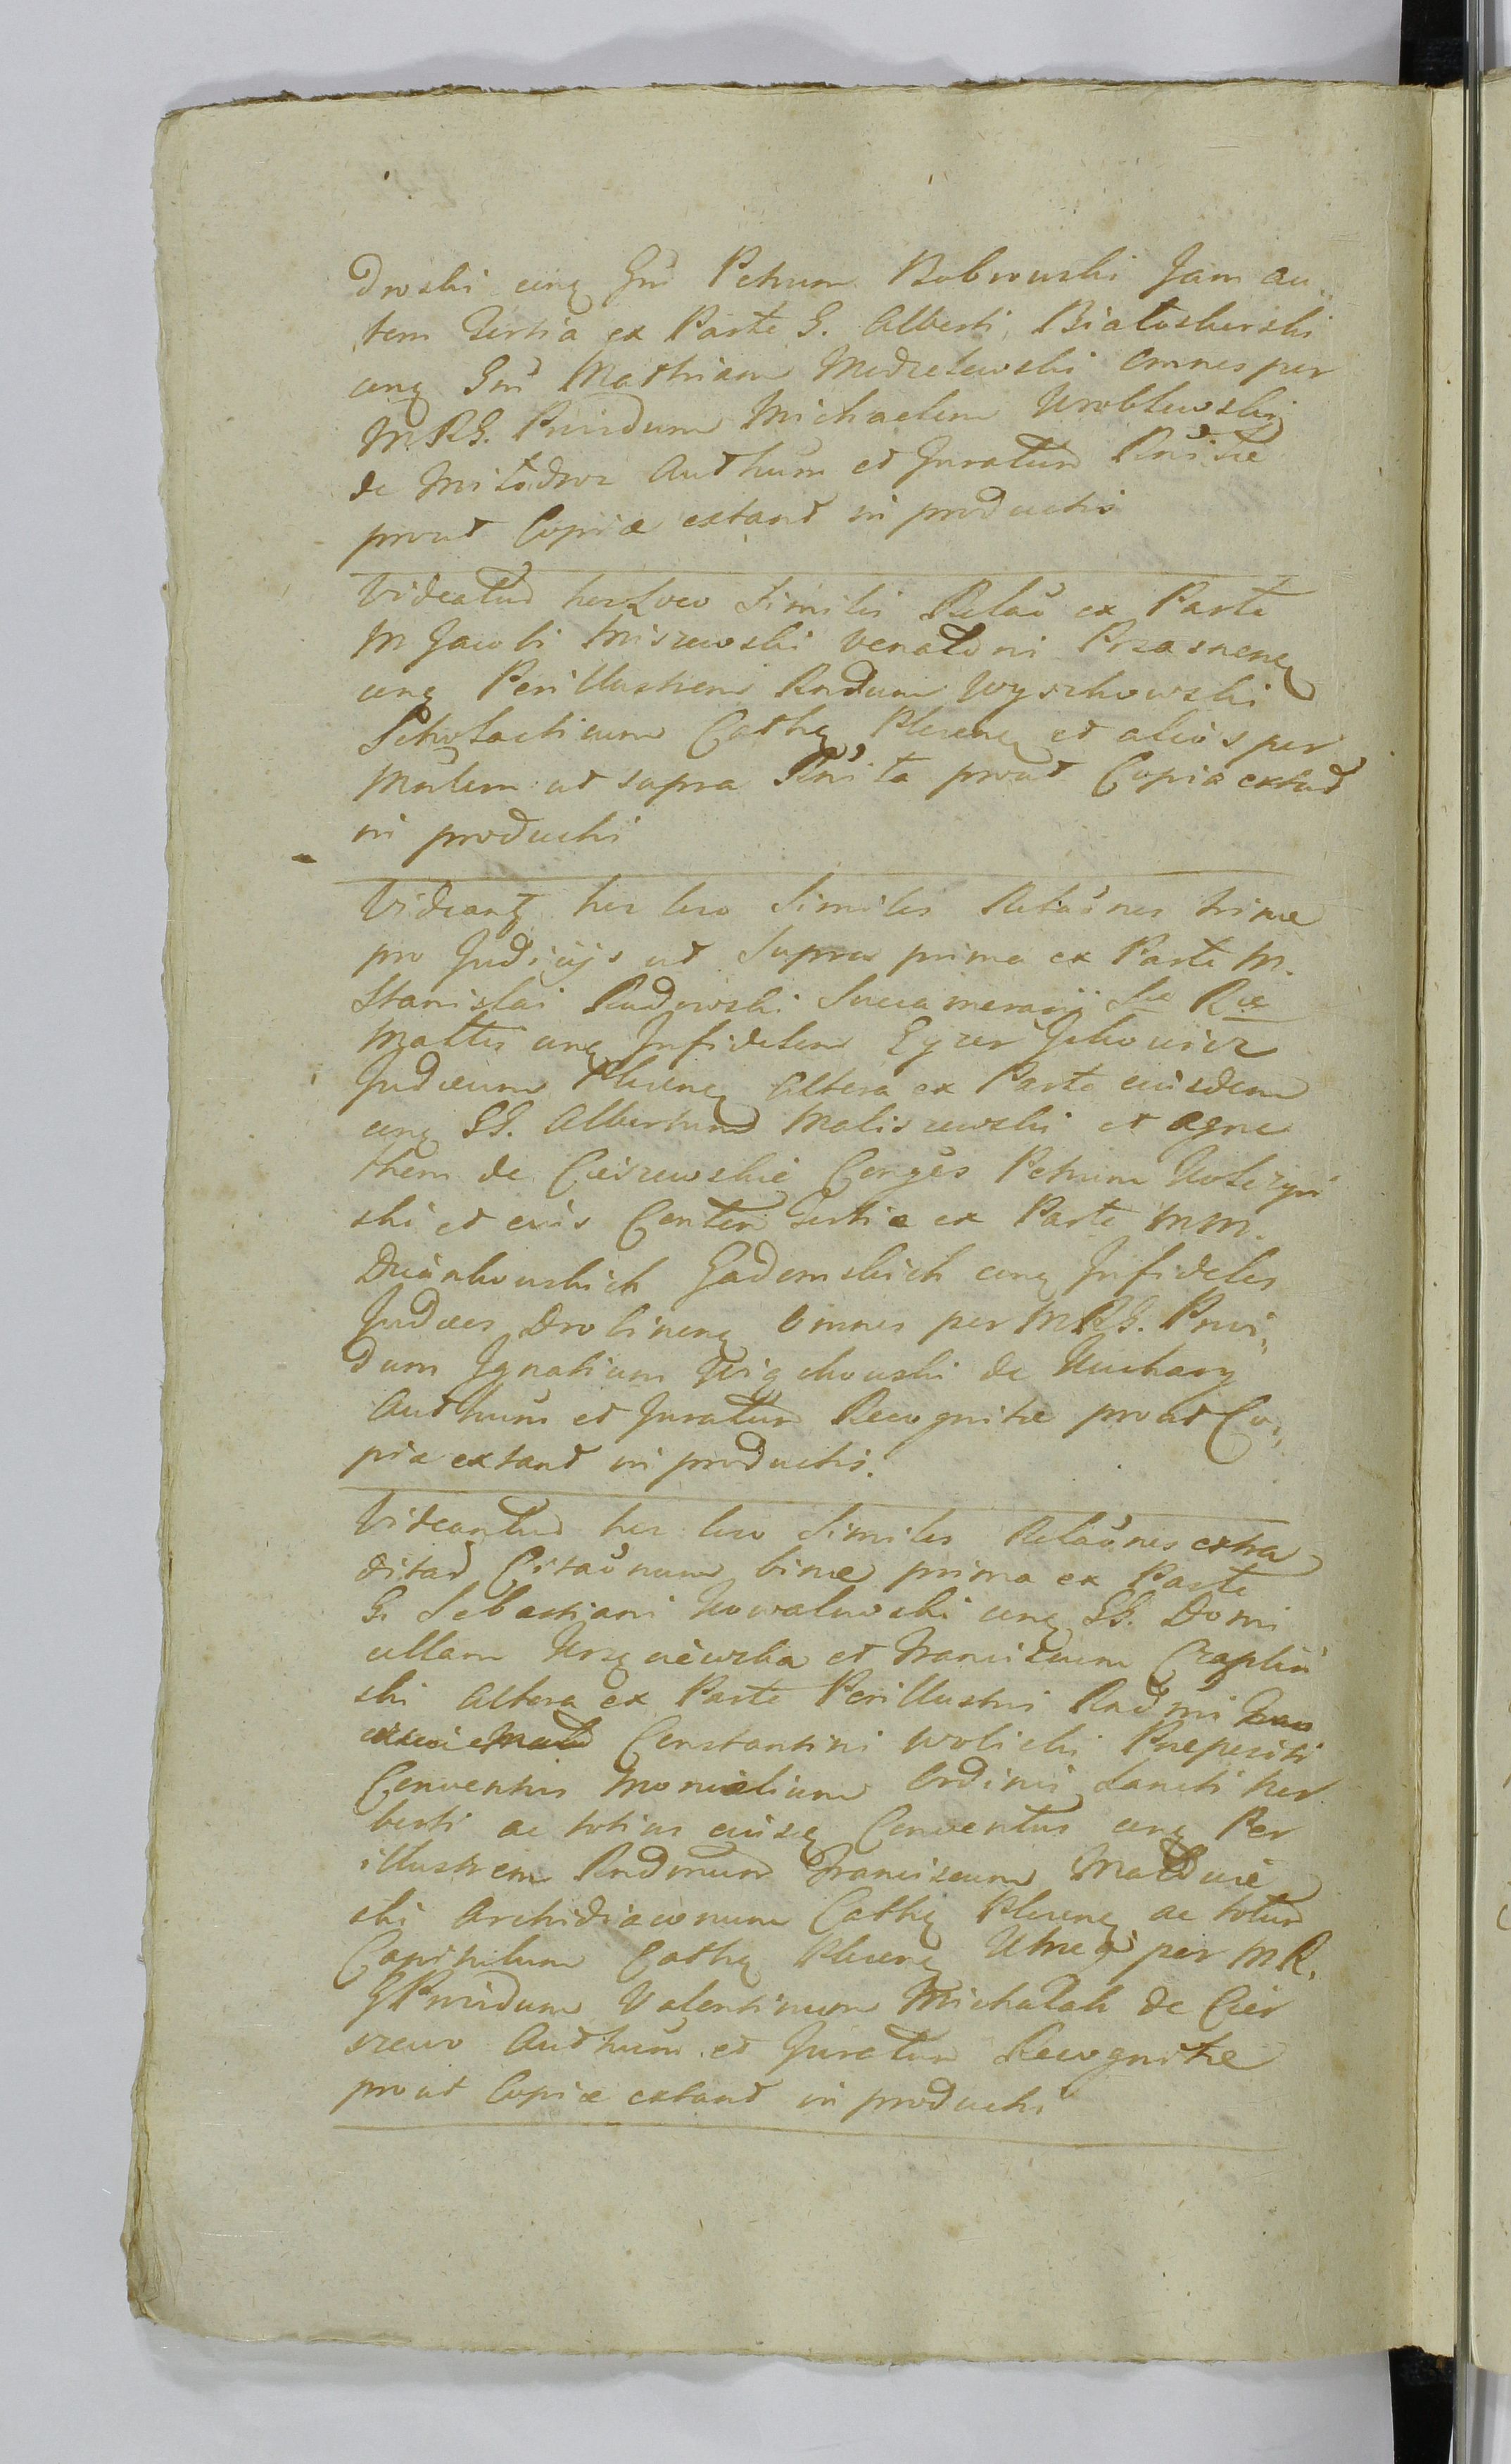 droski cirq Gsu Petrum Bobrowski Jam au„
tem Tertia ex Parte G. Alberti Białoskurski
cirq Gsu Mathiam Medzelewski omnes per
M.R.G. Pruidum Michaelem Wroblewski
de Mitodroz Authum et Juratum Rnitæ
prout Copiæ extant in productis
Videatur hoc Loco Similis Relao ex Parte
M Jacobi Miszewski Venatoris Przasnens
cirq Perillustrem Rndum Wyszkowski
Scholasticum Cathq Plocens et alios per
Mnlem ut supra Rnita prout Copia extat
in productis
Videantq hoc loco Similes Relaones trinæ
pro Judicijs ut Supra prima ex Parte M.
Stanislai Rudowski Succamerarij Sæ Ræ
Mattis cirq Infidelem Eyzer Jehowicz
Judæum Plocens altera ex Parte eiusdem
cirq GG. Albertum Maliszewski et Agne
them de Cieszewskie Conges Petrum Wolszyn
ski et eius Conten Tertia ex Parte MM.
Gadomskich cirq Infideles
Judæos Drobinens Omnes per M.R.G. Prui„
dum Ignatium Wigchowski de Kuchary
Authum et Juratum Recognitæ prout Co„
piæ extant in productis.
Videantur hoc loco Similes Relaones extra
ditar Citaonum binæ prima ex Parte
G. Sebastiani Kowalewski cirq GG. Domi
cellam et Franciscum Czaplin
ski altera ex Parte Perillustris Rndmi
Constantini Wolicki Præpositi
Conventus Monialium Ordinis Sancti Nor
berti ac totius eiusq Conventus cirq Per
illustrem Rndmum Franciscum
ski Archidiaconum Cathq Plocens ac totum
Capitulum Cathq Plocens Utræq per M R.
G Pruidum Valentinum Michalak de Cies
szewo Authum et Juratum Recognitæ
prout Copiæ extant in productis